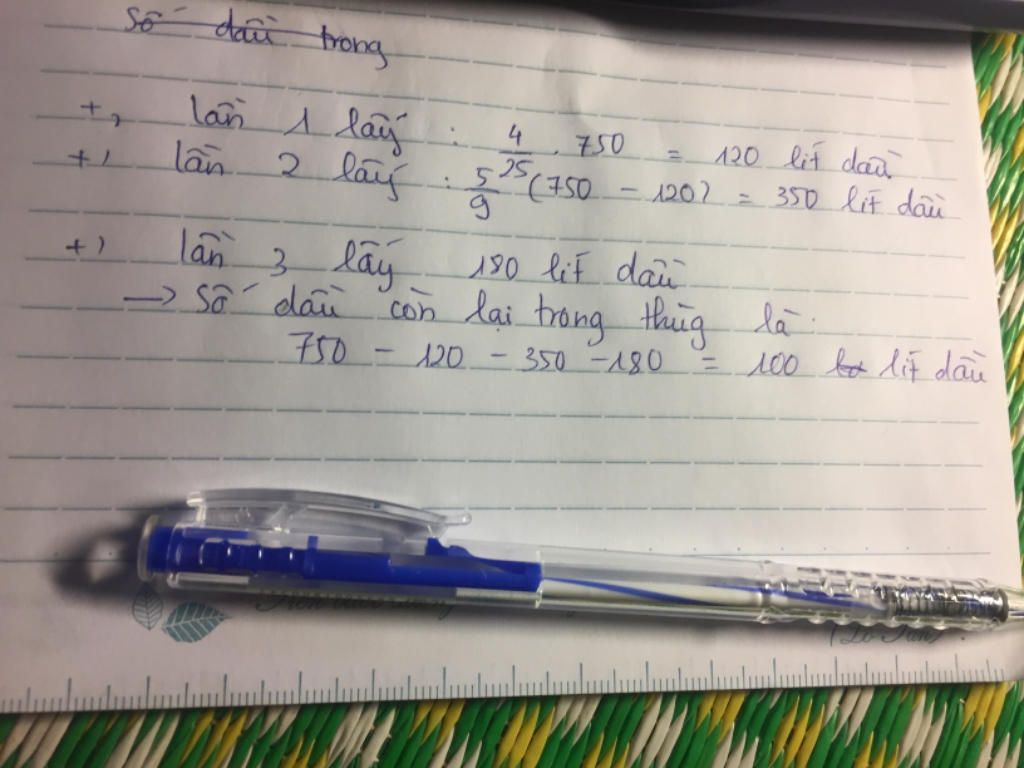 Số dầu trong
+, lần 1 lấy : 4/25 . 750 = 120 lít dầu
+, lần 2 lấy : 5/9 (750 - 120) = 350 lít dầu
+, lần 3 lấy 180 lít dầu
→ số dầu còn lại trong thùg là :
750 - 120 - 350 - 180 = 100 lít dầu